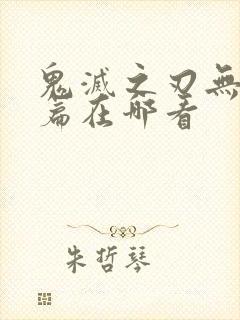 鬼滅之刃無
篇在哪看
朱哲琴